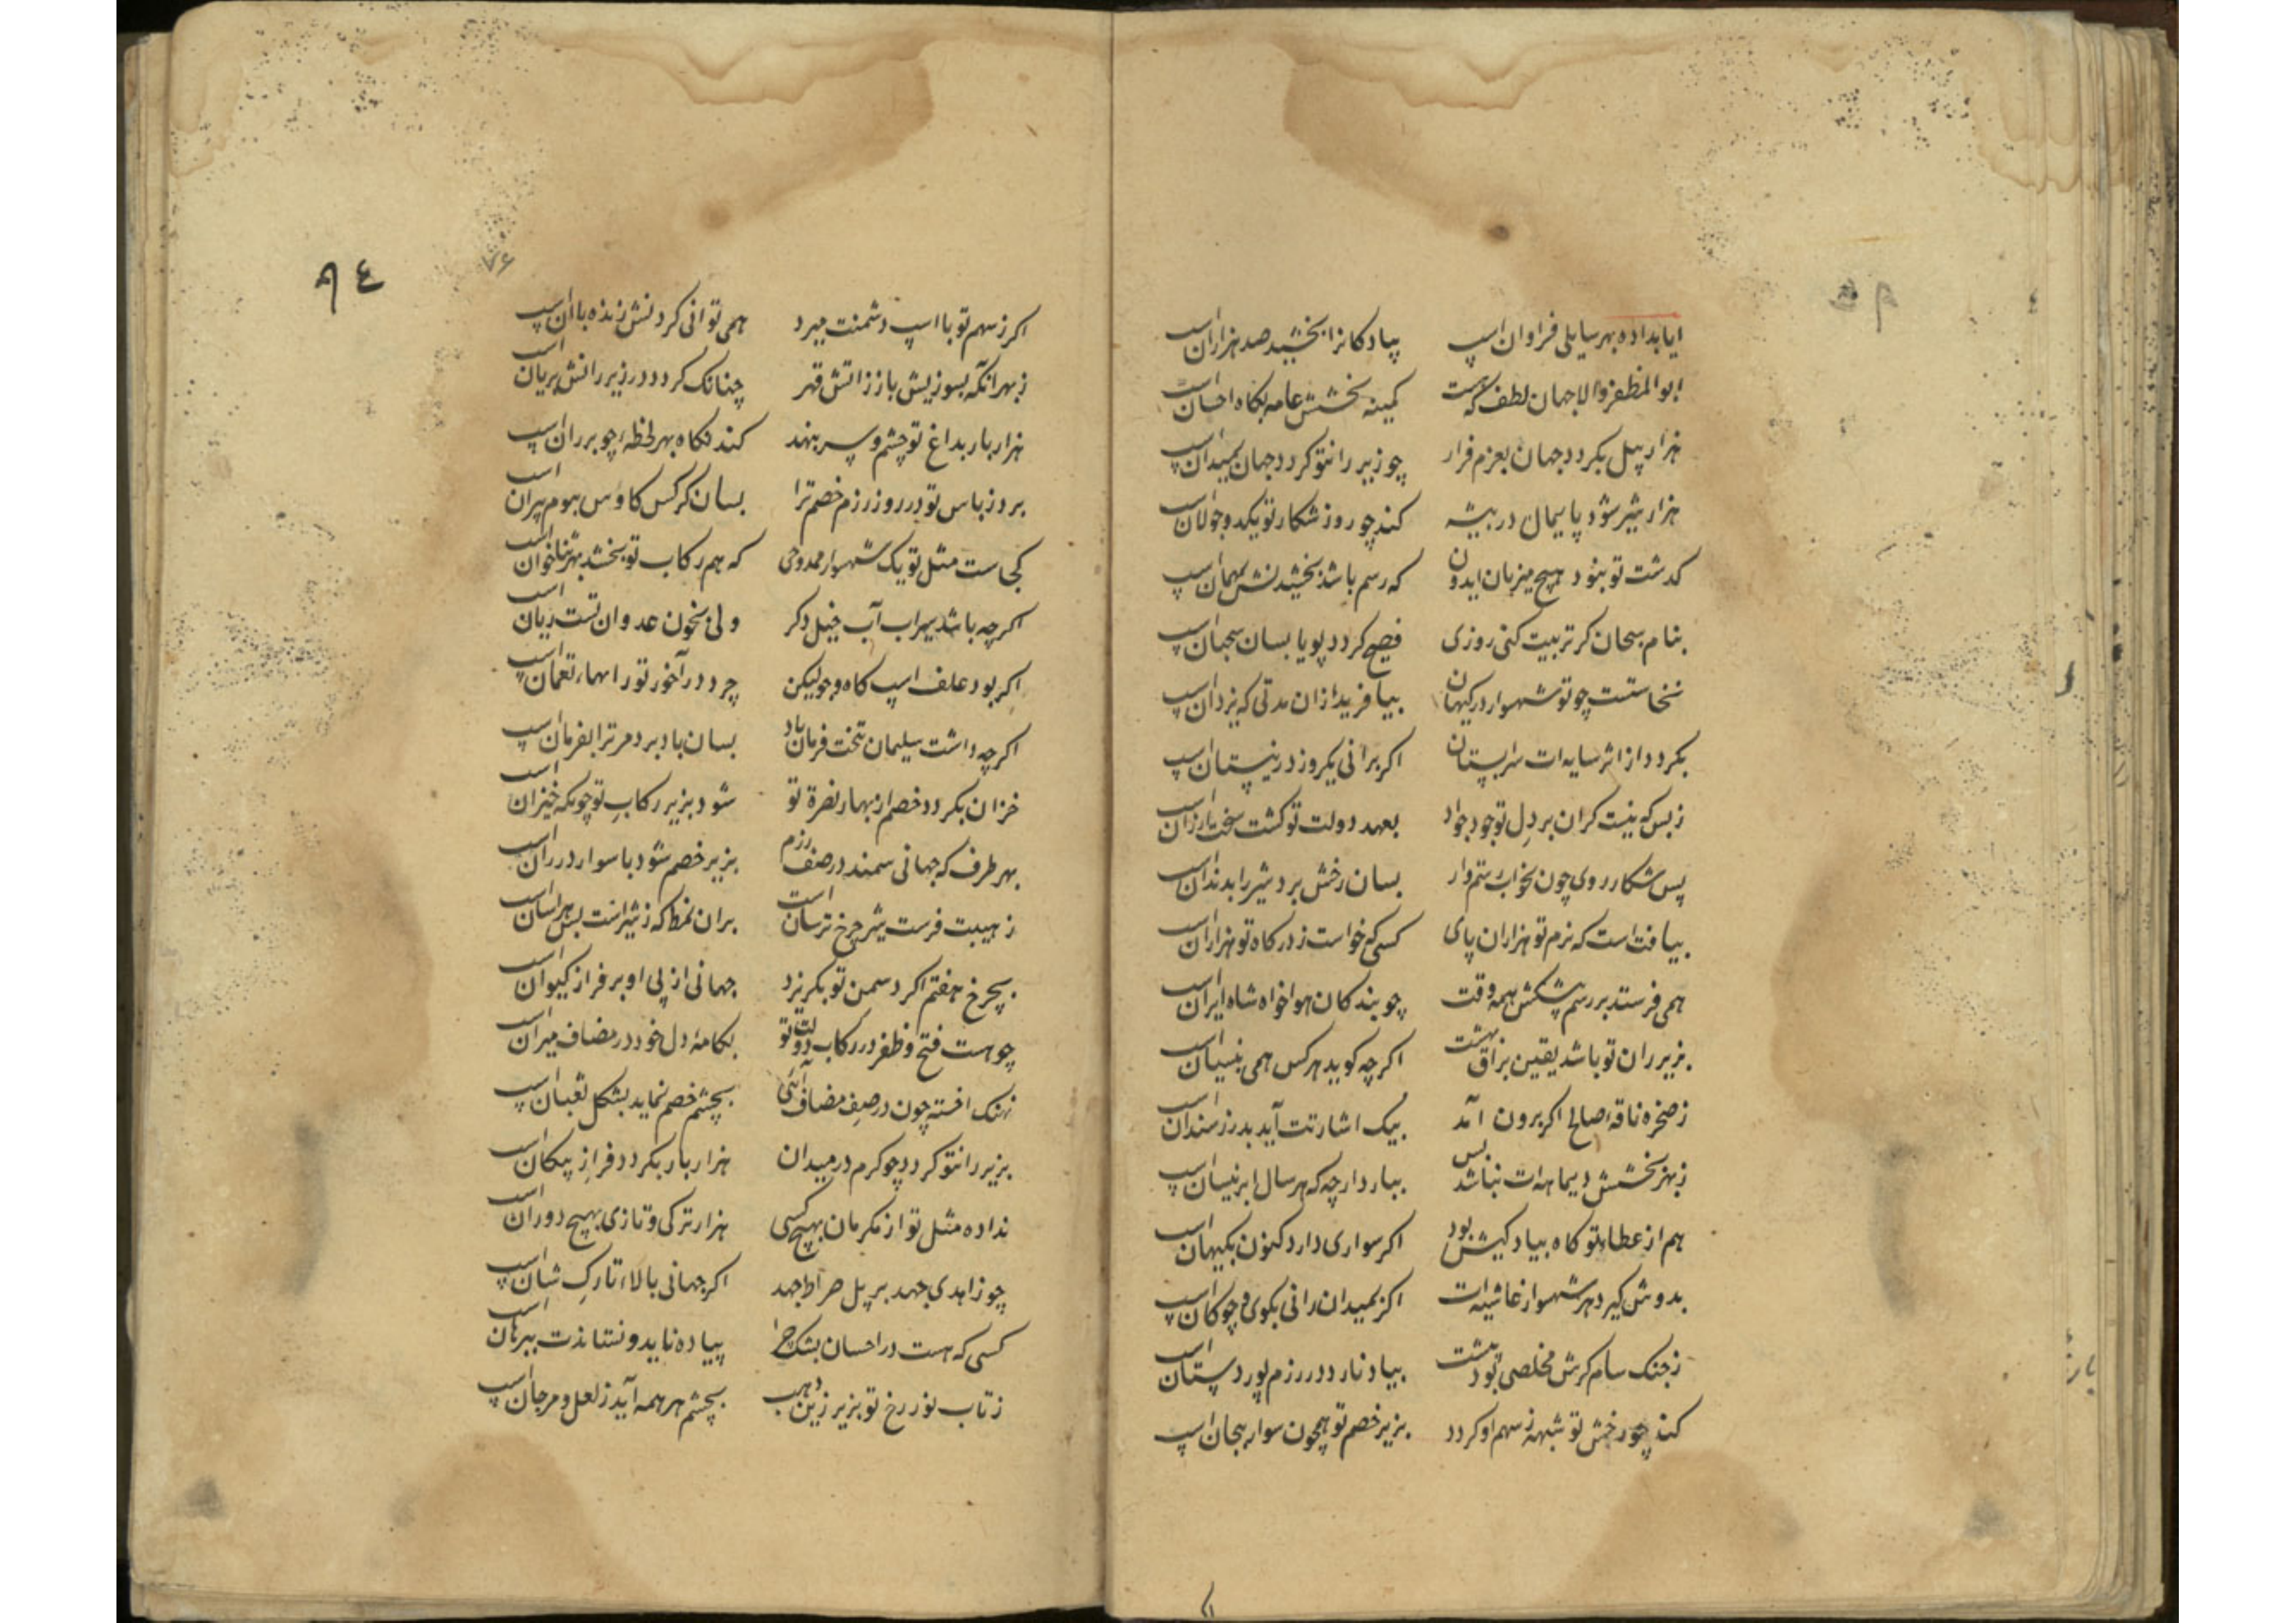 ایا بداده بهر سایلی فراوان اسپ پیادگانرا بخشید صد هزاران اسپ
ابوالمظفر والا جهان لطف که هست کمینه بخشش عامه بگاه احسان اسپ
هزار پیل بگردد جهان بعزم فرار چو زیر رانتو گردد جهان بمیدان اسپ
هزار شیر شود پایمال در بیشه کند چو روز شکار تو یکدو جولان اسپ
گذشت تو بنود هیچ میزبان ایدون که رسم باشد بخشیدنش بمهمان اسپ
بنام سحبان گر تربیت کنی روزی فصیح گردد پویا بسان سحبان اسپ
نخاستست چو تو شهسوار در گیهان بیافرید ازان مدتی که یزدان اسپ
بگردد از اثر سایه ات سرابستان اگر برانی یکروز در نیستان اسپ
زبس که نیست گران بر دل تو جود جواد بعهد دولت تو گشت سخت ارزان اسپ
پس شکار روی چون بخواب رستم وار بسان رخش برد شیر را بدندان اسپ
بیافت است که بزم تو هزاران پای کسی که خواست ز درگاه تو هزاران اسپ
همی فرستد بر رسم پیشکش همه وقت چو بندگان هواخواه شاه ایران اسپ
بزیر ران تو باشد یقین براق بهشت اگرچه گوید هرکس همی بنسیان اسپ
ز صخره ناقه صالح اگر برون آمد بیک اشارتت آید بدر ز سندان اسپ
ز بهر بخشش دیماهه ات نباشد بس ببار دارچه که هر سال ابر نیسان اسپ
هم از عطاء تو گاه پیادگیش بود اگر سواری دارد کنون بگیهان اسپ
بدوش گیرد هر شهسوار غاشیه ات اگر بمیدان رانی بگوی و چوگان اسپ
ز جنگ سام گرش مخلصی بود بهشت بیاد نارد در رزم پور دستان اسپ
کند چو رخش تو شیهه ز سهم او گردد بزیر خصم تو همچون سوار بیجان اسپ
۹٤
۷۶
اگر ز سهم تو با اسپ دشمنت میرد همی توانی کردنش زنده با آن اسپ
ز بهر آنکه بسوزیش باز ز آتش قهر چنانک گردد در زیر رانش بریان اسپ
هزار بار بداغ تو چشم و سر بنهد کند نگاه بهر لحظه ء چو بر ران اسپ
برد ز باس تو در روز رزم خصم ترا بسان کرکس کاوس بوم پران اسپ
کجاست مثل تو یک شهسوار ممدوحی که هم رکاب تو بخشد بهر ثناخوان اسپ
اگرچه باشد سیراب آب خیل دگر ولی بخون عدوان تست ریان اسپ
اگر بود علف اسپ کاه و جو لیکن چرد در آخور تو راسها، نعمان اسپ
اگرچه داشت سلیمان بتخت فرمان باد بسان باد برد مر ترا بفرمان اسپ
خزان بگردد خصم از بهار نصرة تو شود بزیر رکاب تو چونکه خیزان اسپ
بهر طرف که جهانی سمند در صف رزم بزیر خصم شود با سوار در ران اسپ
ز هیبت فرست شیر چرخ ترسان است بران نمط که ز شیر است بس هراسان اسپ
بچرخ هفتم اگر دشمن تو بگریزد جهانی از پی او بر فراز کیوان اسپ
چو هست فتح و ظفر در رکاب دولت تو بکامهٔ دل خود در مضاف میران اسپ
نهنگ اخته چون در صف مضاف آئی بچشم خصم نماید بشکل ثعبان اسپ
بزیر رانتو گردد چو گرم در میدان هزار بار بگردد فراز پیکان اسپ
نداده مثل تو از مکرمان بهیچ کسی هزار ترکی و تازی بهیچ دوران اسپ
چو زاهدی جهد بر پل صراط جهد اگر جهانی بالاء تارک شان اسپ
کسی که هست در احسان بشک چرا پیاده ناید و نستاندت ببرهان اسپ
ز تاب نور رخ تو بزیر زین ذهب بچشم هر همه آید ز لعل و مرجان اسپ